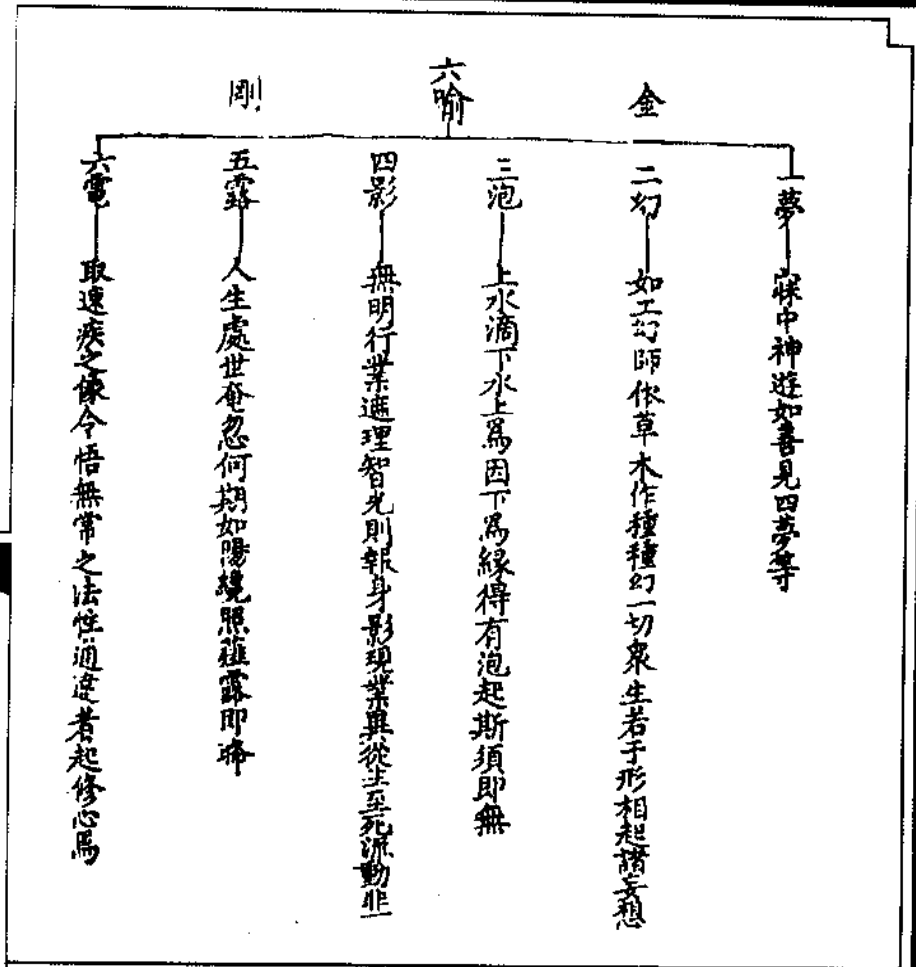 金剛
六喻
一夢 寐中神遊如善見四夢等
二幻 如工幻師依草木作種種幻一切衆生若干形相起諸妄想
三泡 上水滴下水上爲因下爲緣得有泡起斯須即無
四影 無明行業遮理智光則報身影現業異從生至死流動非一
五露 人生處世奄忽何期如陽纔照薤露即晞
六電 取速疾之像令悟無常之法性通達者起修心焉